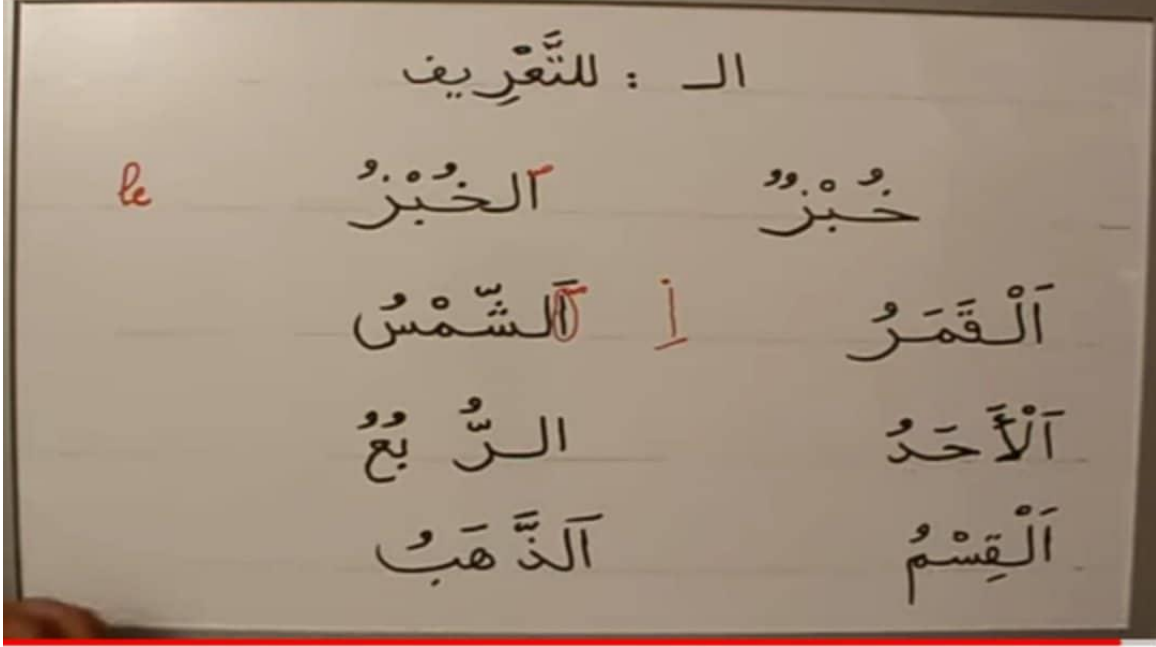 الـ : للتَّعْرِيف
خُبْزٌ الخُبْزُ le
اَلْقَمَرُ أ اَلشَّمْسُ
اَلْأَحَدُ الرُّبُعُ
اَلْقِسْمُ اَلذَّهَبُ